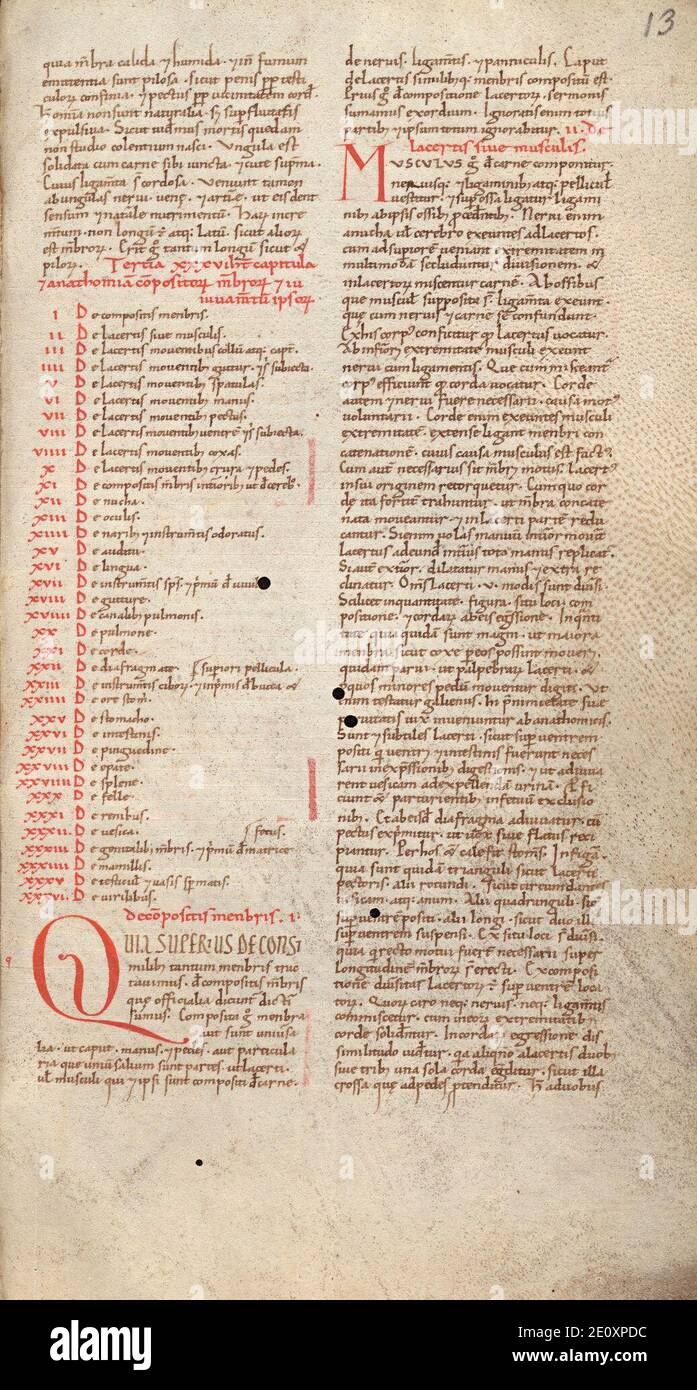 13
quia mbra calida et humida. et in fumum
emittentia sunt pilosa. sicut penis
culorum confinia. et pectus vicinitatem cord.
non sunt naturalia. superfluitatis
expulsiva. Sicut
non studio colentium nasci. Ungula est
solidata cum carne sibi iuncta. et cute suprema.
Cuius ligamta st cordosa. Veniunt tamen
ab ungulas nervi. vene. et artie. ut eis dent
sensum et natale nutrimentu. Hanc incre
mtum. non longum atq; latu. sicut alior
est mbror. tantum longum sicut et
pilor. Tertia xxxvi habet capitula
et anathomia compositor mbror et iu
iuvamtu ipsor
i De compositis menbris.
ii De lacertis sive musculis.
iii De lacertis moventibus collum atq; caput.
iiii De lacertis moventib gutur. et subiecta
v De lacertis moventib spatulas.
vi De lacertis moventib manus.
vii De lacertis moventib pectus.
viii De lacertis moventib ventre subiecta.
viiii De lacertis moventib coxas.
x De lacertis moventib crura et pedes.
xi De compositis mbris intiorib ut cereb.
xii De nucha.
xiii De oculis.
xiiii De narib et instrumtis odoratus.
xv De auditu.
xvi De lingua.
xvii De instrumtis sps. et primu
xviii De guture.
xviiii De canalib pulmonis.
xx De pulmone.
xxi De corde.
xxii De diafragmate superiori pellicula.
xxiii De instrumtis cibor. et inprimis de bucca et
xxiiii De ore stom.
xxv De stomacho.
xxvi De intestinis.
xxvii De pinguedine.
xxviii De epate.
xxviiii De splene.
xxx De felle.
xxxi De renibus.
xxxii. De vesica. fetus.
xxxiii De genitalib mbris. et primu de matrice
xxxiiii De mamillis.
xxxv De testiculis et vasis spmatis.
xxxvi. De virilibus.
De compositis menbris. i.
QUIA SUPERIUS DE CONSI
milib tantum menbris trac
tavimus. de compositis mbris
que officialia dicunt dicturi
sumus. Composita menbra
aut sunt univsa
lia. ut caput. manus. et pedes. aut particula
ria que univsalium sunt partes. ut lacerti.
vel musculi qui et ipsi sunt compositi de carne.
de nervis. ligamtis. et panniculis. Caput
de lacertis similibq; menbris compositu est.
Prius de compositione lacertor. sermonis
sumamus exordium. Ignoratis enim totius
partib et ipsum totum ignorabitur. ii. De
lacertis sive musculis.
MUSCULUS de carne componitur.
nervisq; et ligaminib atq; pellicul
vestitur. et suppossa ligatur. ligami
nib ab ipsis ossib pcedentib. Nervi enim
a nucha vel cerebro exeuntes ad lacertos.
cum ad supiore veniant extremitatem in
multimoda secluduntur divisionem. et
in lacertor miscentur carne. Ab ossibus
que muscul supposita st ligamta exeunt.
que cum nervis et carne se confundunt.
Ex his corpus conficitur quod lacertus vocatur.
Ab infiori extremitate musculi exeunt
nervi cum ligamentis. Que cum misceantur
corpus efficiunt quod corda vocatur. Corde
autem et nervi fuere necessarii. causa motus
voluntarii. Corde enim exeuntes musculi
extremitate. extense ligant menbri con
catenatione. cuius causa musculus est factus.
Cum autem necessarius sit mbri motus. lacertus
in sui originem retorquetur. Cumquo cor
de ita fortit trahuntur. ut mbra concate
nata moveantur. et in lacerti parte redu
cantur. Si enim volas manuum movent
lacertus ad eundem toto manus replicat.
Si aut exterior. dilatatur manus et extra re
clinatur. Oms lacerti. v. modis sunt divisi.
Scilicet in quantitate. figura. situ loci. com
positione. et cordar egressione. In qnti
tate quia quidam sunt magni. ut maiora
menbra. sicut coxe possint moveri.
quidam parvi. ut palpebrar lacerti. et
quos minores pedum moventur digiti. Ut
testatur galienus.
parvitatis vix inveniuntur ab anathomicis.
Sunt et subtiles lacerti. sicut super ventrem
positi ventri et intestinis fuerunt neces
sarii in expressionib digestionis. et ut adiuva
rent vesicam ad expellendam urinam.
ciunt et parturientib in fetuum exclusio
nib. diafragma adiuvatur. cu
pectus exprimitur. ut vox sive flatus reci
piantur. Per hos et calefit stom. In figura.
quia sunt quidam trianguli sicut lacerti
pectoris. alii rotundi. sicut circumdantes
vesicam. atq; anum. Alii quadranguli. sic
super ventre positi. alii longi. sicut duo illi
super ventrem suspensi. Ex situ loci st divisi.
quia recto motui fuere necessarii super
longitudine mbror st erecti. Ex composi
tione divisi lacerti super ventre loca
tor. Quor caro neq; nervis. neq; ligamtis
commiscetur. cum in eor extremitatib
corde solidentur. In cordar egressione. dis
similitudo videtur. quia aliquando a lacertis duob
sive trib una sola corda egreditur. sicut illa
crossa que ad pedes ptenditur. a duobus
alamy
Image ID: 2E0XPDC
www.alamy.com